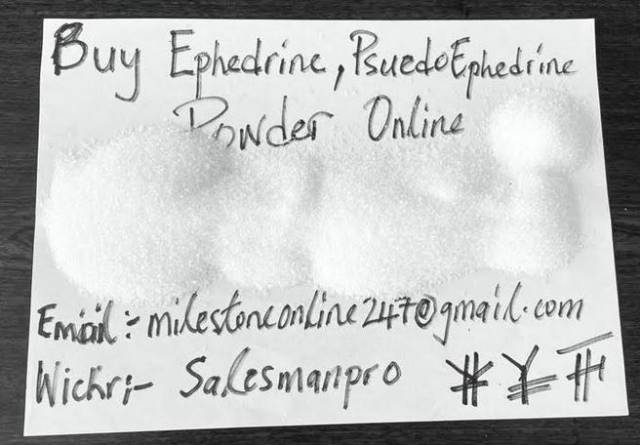 Buy Ephedrine, PsuedoEphedrine
Powder Online
Email:- milestoneonline247@gmail.com
Wickr:- Salesmanpro